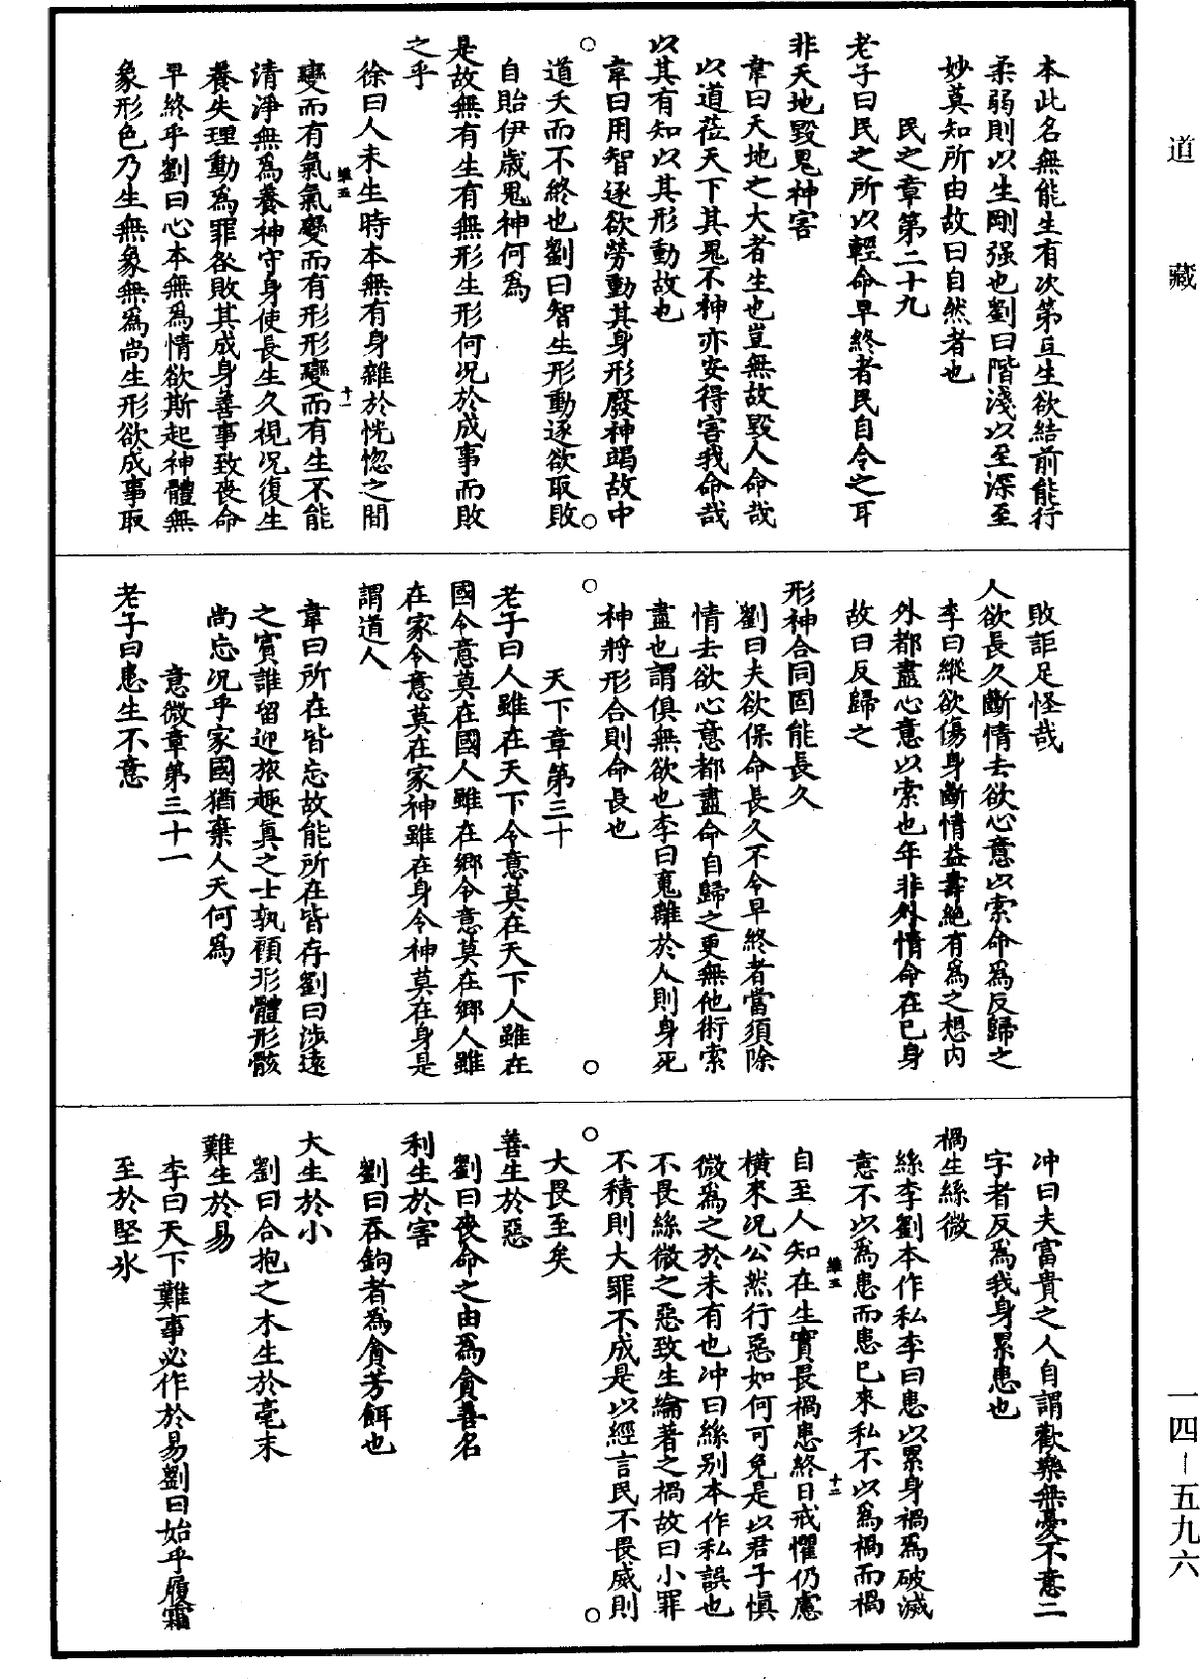 道藏
本此名無能生有次第互生欲結前能行
柔弱則以生剛强也劉曰階淺以至深至
妙莫知所由故曰自然者也
民之章第二十九
老子曰民之所以輕命早終者民自令之耳
非天地毀鬼神害
韋曰天地之大者生也豈無故毀人命哉
以道莅天下其鬼不神亦安得害我命哉
以其有知以其形動故也
韋曰用智逐欲勞動其身形廢神竭故中
道夭而不終也劉曰智生形動逐欲取敗
自貽伊歲鬼神何爲
是故無有生有無形生形何况於成事而敗
之乎
徐曰人未生時本無有身雜於恍惚之間
變而有氣氣變而有形形變而有生不能
維五
十一
清淨無爲養神守身使長生久視况復生
養失理動爲罪咎敗其成身善事致喪命
早終乎劉曰心本無爲情欲斯起神體無
象形色乃生無象無爲尚生形欲成事取
敗詎足怪哉
人欲長久斷情去欲心意以索命爲反歸之
李曰縱欲傷身斷情益壽絕有爲之想内
外都盡心意以索也年非外情命在已身
故曰反歸之
形神合同固能長久
劉曰夫欲保命長久不令早終者當須除
情去欲心意都盡命自歸之更無他術索
盡也謂俱無欲也李曰䰟離於人則身死
神將形合則命長也
天下章第三十
老子曰人雖在天下令意莫在天下人雖在
國令意莫在國人雖在鄉令意莫在鄉人雖
在家令意莫在家神雖在身令神莫在身是
謂道人
韋曰所在皆忘故能所在皆存劉曰涉遠
之賓誰留迎旅趣真之士孰顧形體形骸
尚忘况乎家國猶棄人天何爲
意微章第三十一
老子曰患生不意
冲曰夫富貴之人自謂歡樂無憂不意二
字者反爲我身累患也
禍生絲微
絲李劉本作私李曰患以累身禍爲破滅
意不以爲患而患已來私不以爲禍而禍
自至人知在生實畏禍患終日戒懼仍慮
維五
十二
橫來况公然行惡如何可免是以君子愼
微爲之於未有也冲曰絲别本作私誤也
不畏絲微之惡致生綸著之禍故曰小罪
不積則大罪不成是以經言民不畏威則
大畏至矣
善生於惡
劉曰喪命之由爲貪善名
利生於害
劉曰吞鉤者爲貪芳餌也
大生於小
劉曰合抱之木生於毫末
難生於易
李曰天下難事必作於易劉曰始乎履霜
至於堅氷
一四—五九六